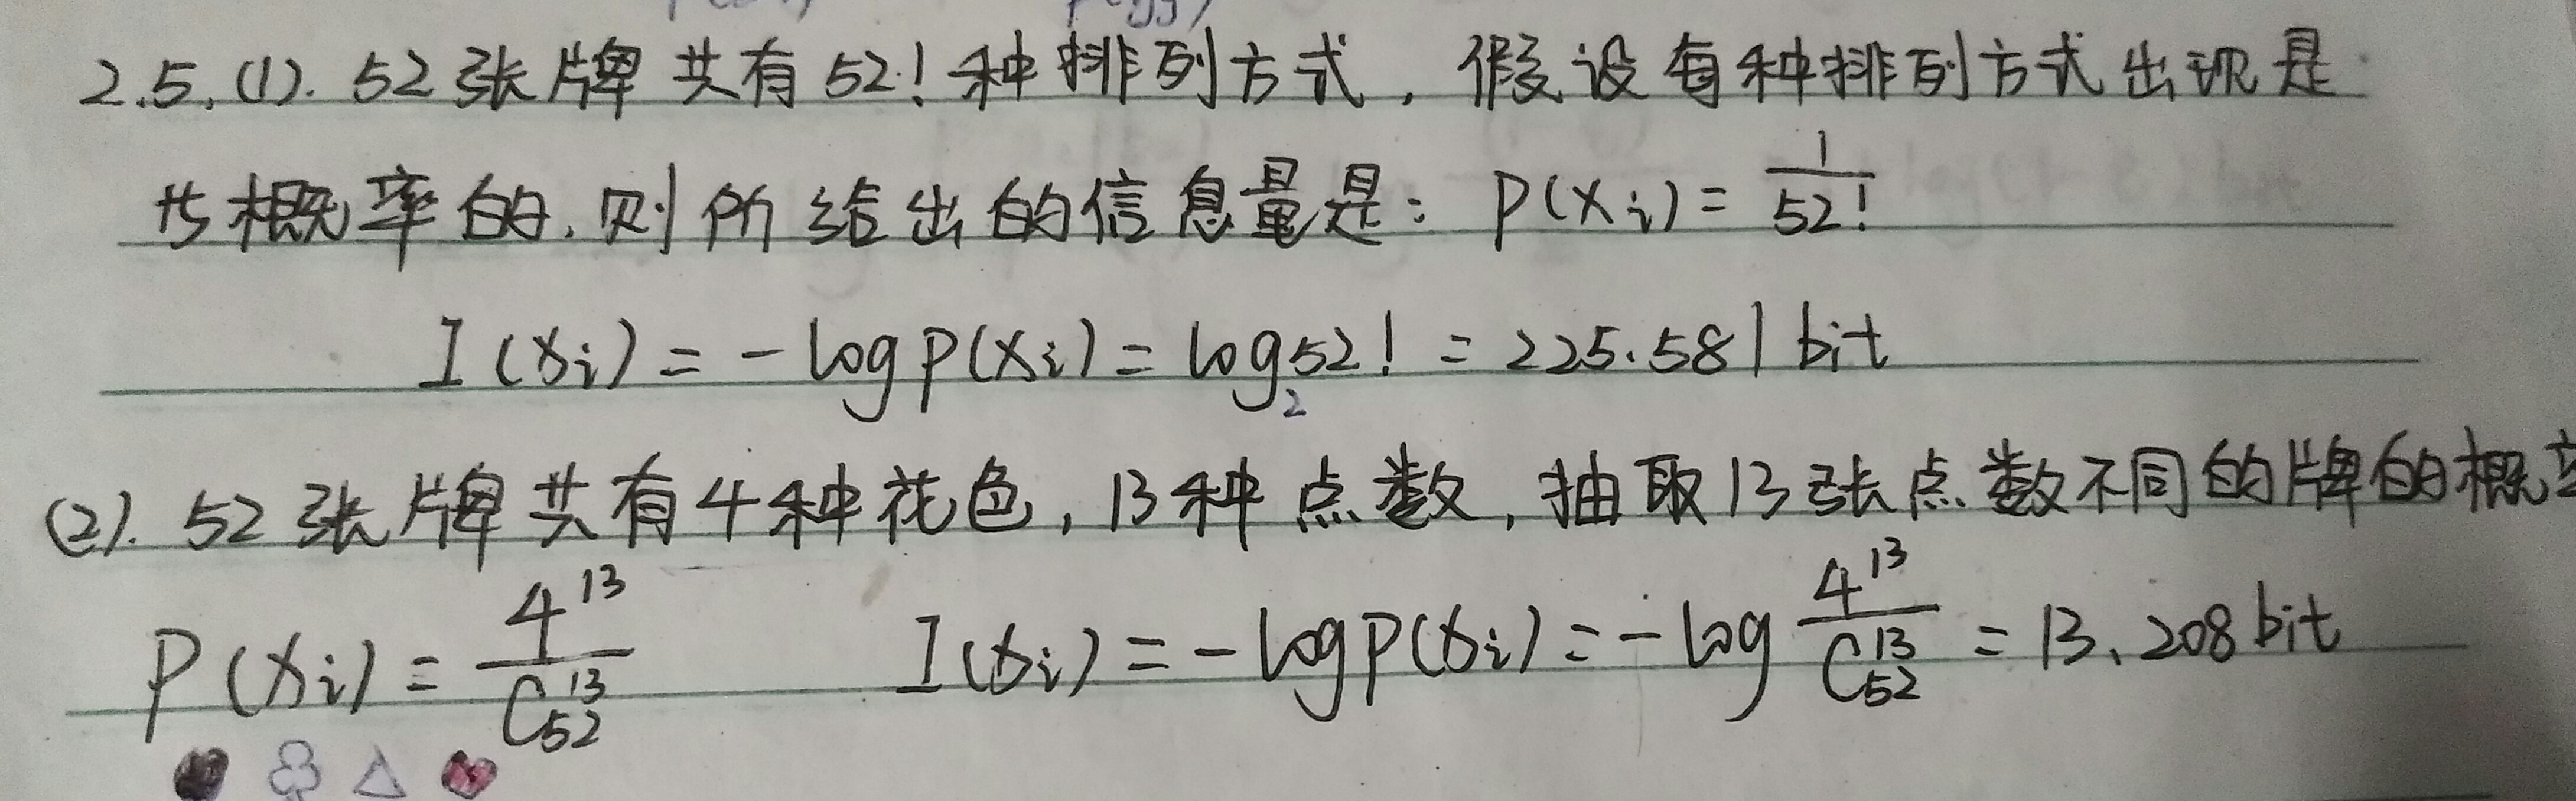 2.5.(1). 52张牌共有52!种排列方式，假设每种排列方式出现是
概率的.则所给出的信息量是：P(xi)=1/52!
I(xi)=-logP(xi)=log₂52!=225.581bit
(2).52张牌共有4种花色，13种点数，抽取13张点数不同的牌的概
P(xi)=4^13/C_52^13 I(xi)=-logP(xi)=-log 4^13/C_52^13=13.208bit